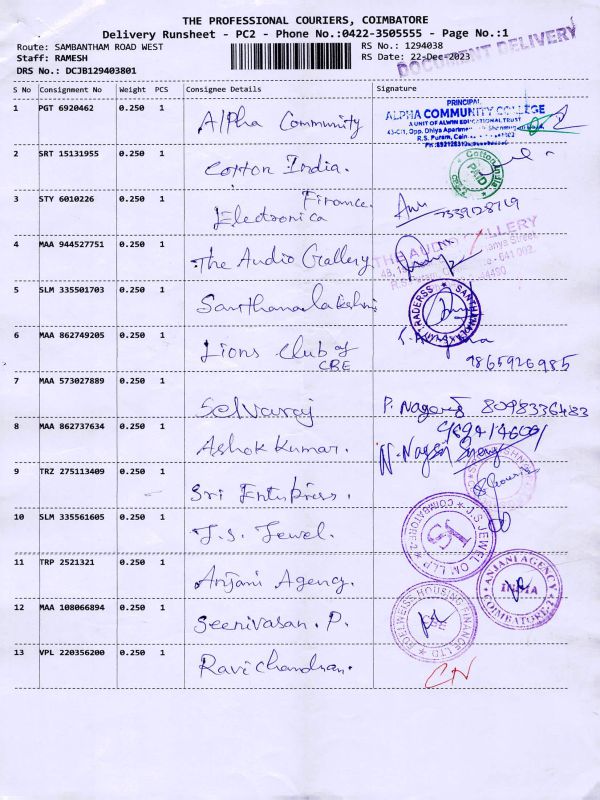 THE PROFESSIONAL COURIERS, COIMBATORE
Delivery Runsheet - PC2 - Phone No.:0422-3505555 - Page No.:1
Route: SAMBANTHAM ROAD WEST RS No.: 1294038
Staff: RAMESH RS Date: 22-Dec-2023
DOCUMENT DELIVERY
DRS No.: DCJB129403801
S No Consignment No Weight PCS Consignee Details Signature
1 PGT 6920462 0.250 1 Alpha Community
PRINCIPAL
ALPHA COMMUNITY COLLEGE
A UNIT OF ALWIN EDUCATIONAL TRUST
43-C/1, Opp. Dhiya Apartment
R.S. Puram,
2 SRT 15131955 0.250 1 Cotton India.
Cotton India
PAID
3 STY 6010226 0.250 1 Firance.
Electronica
4 MAA 944527751 0.250 1 The Audio Grallery
THE AUDIO GALLERY
5 SLM 335501703 0.250 1 Santhanalakshmi
6 MAA 862749205 0.250 1 Lions Club of
CBE
9865926985
7 MAA 573027889 0.250 1 Selvaraj P. Nagaraj 8098336483
8 MAA 862737634 0.250 1 Ashok Kumar.
9 TRZ 275113409 0.250 1 Sri Enterprises.
10 SLM 335561605 0.250 1 J.S. Jewel.
J.S JEWEL ON LLP
JS
COIMBATORE-2
11 TRP 2521321 0.250 1 Anjani Agency.
ANJANI AGENCY
INDIA
COIMBATORE-2
12 MAA 108066894 0.250 1 Seenivasan. P.
EDELWEISS HOUSING FINANCE LTD
13 VPL 220356200 0.250 1 Ravichandran.